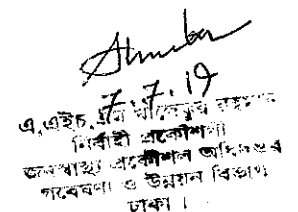 7.7.19
এ,এইচ,এম খালেকুর রহমান
নির্বাহী প্রকৌশলী
জনস্বাস্থ্য প্রকৌশল অধিদপ্তর
গবেষণা ও উন্নয়ন বিভাগ
ঢাকা ।